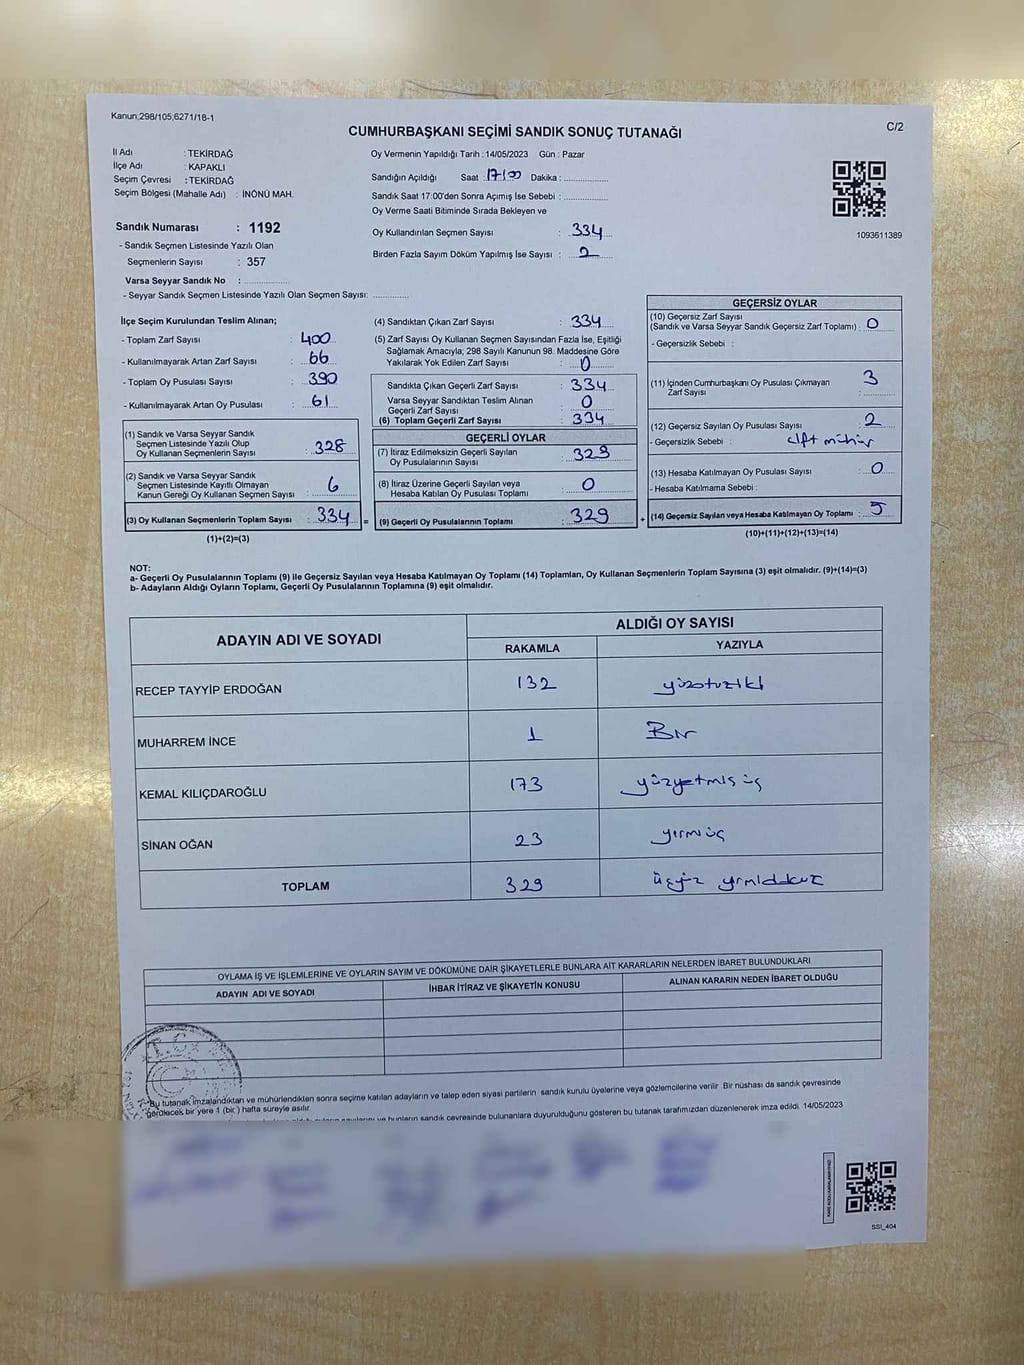 Kanun;298/105;6271/18-1
CUMHURBAŞKANI SEÇİMİ SANDIK SONUÇ TUTANAĞI
C/2
İl Adı : TEKİRDAĞ
İlçe Adı : KAPAKLI
Seçim Çevresi : TEKİRDAĞ
Seçim Bölgesi (Mahalle Adı) : İNÖNÜ MAH.
Oy Vermenin Yapıldığı Tarih : 14/05/2023 Gün : Pazar
Sandığın Açıldığı Saat : 17:00 Dakika : ....................
Sandık Saat 17:00'den Sonra Açımış İse Sebebi : ....................
Oy Verme Saati Bitiminde Sırada Bekleyen ve
Oy Kullandırılan Seçmen Sayısı : 334
Birden Fazla Sayım Döküm Yapılmış İse Sayısı : 2
1093611389
Sandık Numarası : 1192
- Sandık Seçmen Listesinde Yazılı Olan
Seçmenlerin Sayısı : 357
Varsa Seyyar Sandık No : ....................
- Seyyar Sandık Seçmen Listesinde Yazılı Olan Seçmen Sayısı: ................
İlçe Seçim Kurulundan Teslim Alınan;
- Toplam Zarf Sayısı : 400
- Kullanılmayarak Artan Zarf Sayısı : 66
- Toplam Oy Pusulası Sayısı : 390
- Kullanılmayarak Artan Oy Pusulası : 61
(1) Sandık ve Varsa Seyyar Sandık
Seçmen Listesinde Yazılı Olup
Oy Kullanan Seçmenlerin Sayısı : 328
(2) Sandık ve Varsa Seyyar Sandık
Seçmen Listesinde Kayıtlı Olmayan
Kanun Gereği Oy Kullanan Seçmen Sayısı : 6
(3) Oy Kullanan Seçmenlerin Toplam Sayısı : 334 =
(1)+(2)=(3)
(4) Sandıktan Çıkan Zarf Sayısı : 334
(5) Zarf Sayısı Oy Kullanan Seçmen Sayısından Fazla İse, Eşitliği
Sağlamak Amacıyla; 298 Sayılı Kanunun 98. Maddesine Göre
Yakılarak Yok Edilen Zarf Sayısı : 0
Sandıkta Çıkan Geçerli Zarf Sayısı : 334
Varsa Seyyar Sandıktan Teslim Alınan
Geçerli Zarf Sayısı : 0
(6) Toplam Geçerli Zarf Sayısı : 334
GEÇERLİ OYLAR
(7) İtiraz Edilmeksizin Geçerli Sayılan
Oy Pusulalarının Sayısı : 329
(8) İtiraz Üzerine Geçerli Sayılan veya
Hesaba Katılan Oy Pusulası Toplamı : 0
(9) Geçerli Oy Pusulalarının Toplamı : 329 +
GEÇERSİZ OYLAR
(10) Geçersiz Zarf Sayısı
(Sandık ve Varsa Seyyar Sandık Geçersiz Zarf Toplamı) : 0
- Geçersizlik Sebebi :
(11) İçinden Cumhurbaşkanı Oy Pusulası Çıkmayan
Zarf Sayısı : 3
(12) Geçersiz Sayılan Oy Pusulası Sayısı : 2
- Geçersizlik Sebebi : çift mühür
(13) Hesaba Katılmayan Oy Pusulası Sayısı : 0
- Hesaba Katılmama Sebebi :
(14) Geçersiz Sayılan veya Hesaba Katılmayan Oy Toplamı : 5
(10)+(11)+(12)+(13)=(14)
NOT:
a- Geçerli Oy Pusulalarının Toplamı (9) ile Geçersiz Sayılan veya Hesaba Katılmayan Oy Toplamı (14) Toplamları, Oy Kullanan Seçmenlerin Toplam Sayısına (3) eşit olmalıdır. (9)+(14)=(3)
b- Adayların Aldığı Oyların Toplamı, Geçerli Oy Pusulalarının Toplamına (9) eşit olmalıdır.
ADAYIN ADI VE SOYADI
ALDIĞI OY SAYISI
RAKAMLA YAZIYLA
RECEP TAYYİP ERDOĞAN 132 yüzotuziki
MUHARREM İNCE 1 Bir
KEMAL KILIÇDAROĞLU 173 yüzyetmiş üç
SİNAN OĞAN 23 yirmiüç
TOPLAM 329 üçyüz yirmidokuz
OYLAMA İŞ VE İŞLEMLERİNE VE OYLARIN SAYIM VE DÖKÜMÜNE DAİR ŞİKAYETLERLE BUNLARA AİT KARARLARIN NELERDEN İBARET BULUNDUKLARI
ADAYIN ADI VE SOYADI İHBAR İTİRAZ VE ŞİKAYETİN KONUSU ALINAN KARARIN NEDEN İBARET OLDUĞU
T.C.
Bu tutanak imzalandıktan ve mühürlendikten sonra seçime katılan adayların ve talep eden siyasi partilerin sandık kurulu üyelerine veya gözlemcilerine verilir. Bir nüshası da sandık çevresinde
görülecek bir yere 1 (bir) hafta süreyle asılır.
ve bunların sandık çevresinde bulunanlara duyurulduğunu gösteren bu tutanak tarafımızdan düzenlenerek imza edildi. 14/05/2023
SSI_404